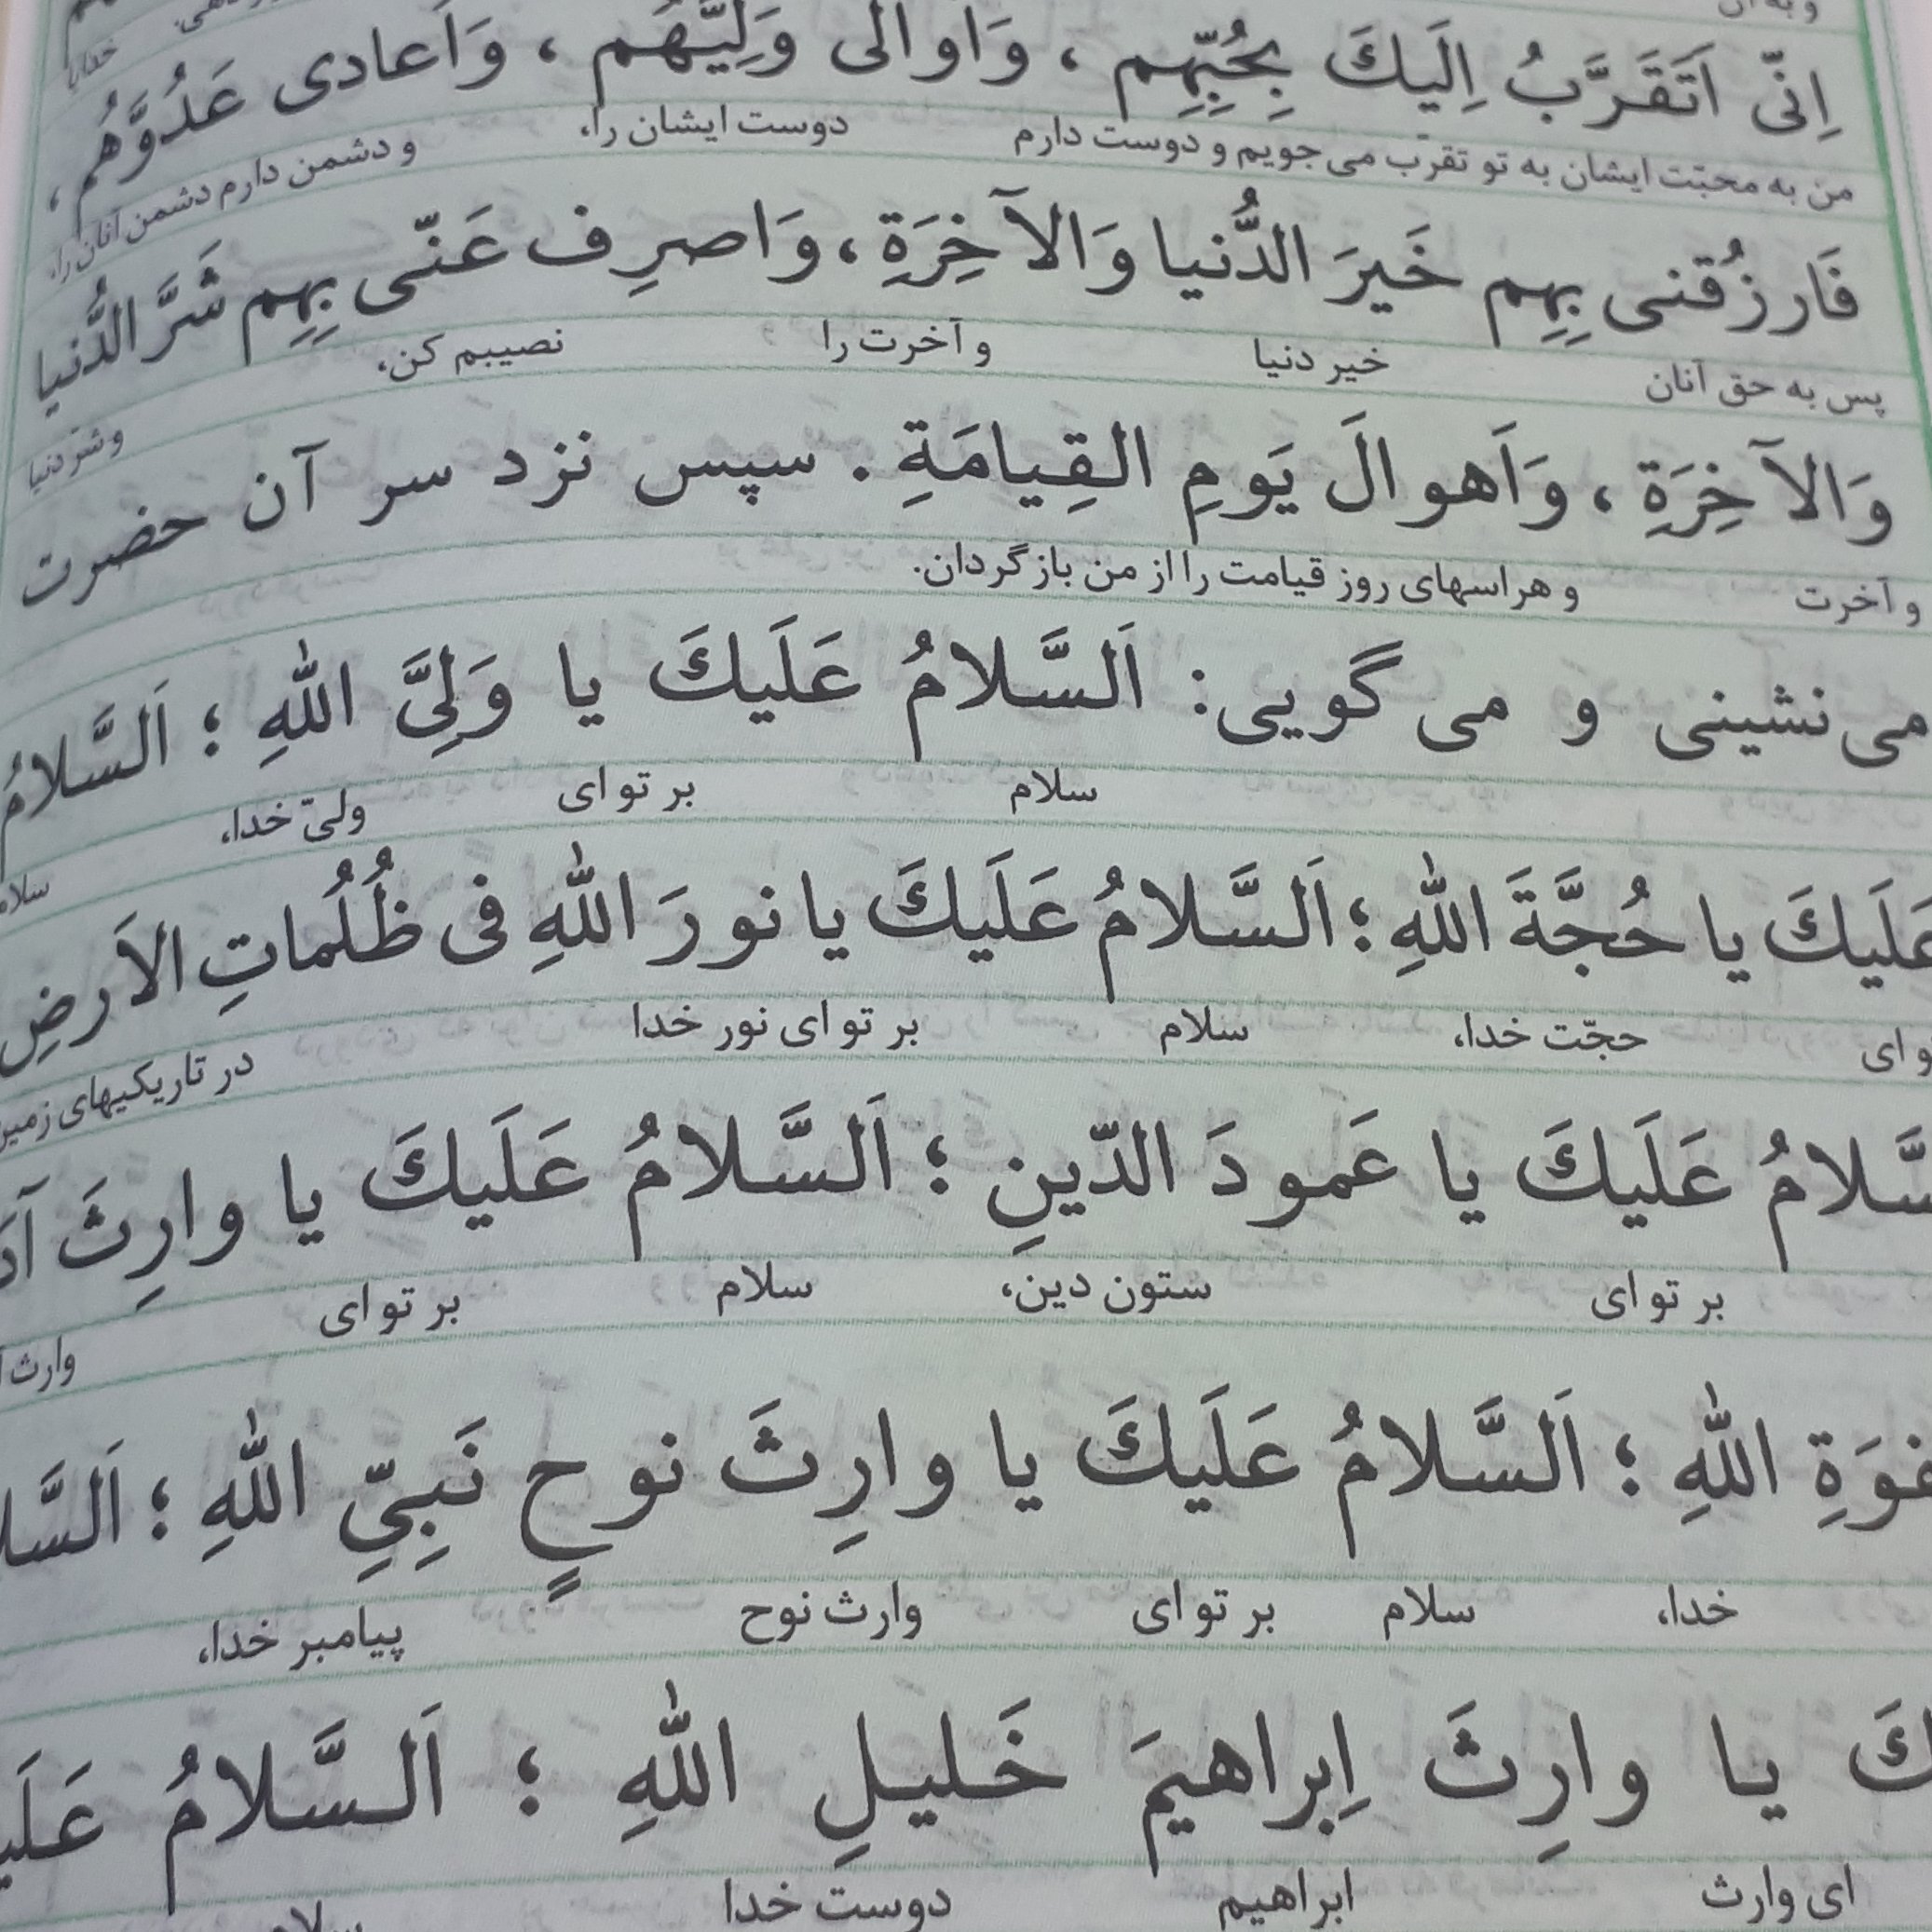 و به آن
اِنّی اَتَقَرَّبُ اِلَیكَ بِحُبِّهِم ، وَاُوالی وَلِیَّهُم ، وَاُعادی عَدُوَّهُم ،
من به محبّت ایشان به تو تقرّب می جویم و دوست دارم دوست ایشان را، و دشمن دارم دشمن آنان را،
فَارزُقنی بِهِم خَیرَ الدُّنیا وَالآخِرَةِ ، وَاصرِف عَنّی بِهِم شَرَّ الدُّنیا
پس به حق آنان خیر دنیا و آخرت را نصیبم کن، و شرّ دنیا
وَالآخِرَةِ ، وَاَهوالَ یَومِ القِیامَةِ . سپس نزد سر آن حضرت
و آخرت و هراسهای روز قیامت را از من بازگردان.
می نشینی و می گویی: اَلسَّلامُ عَلَیكَ یا وَلِیَّ اللهِ ؛ اَلسَّلامُ
سلام بر تو ای ولیّ خدا،
عَلَیكَ یا حُجَّةَ اللهِ ؛ اَلسَّلامُ عَلَیكَ یا نورَ اللهِ فی ظُلُماتِ الاَرضِ
و ای حجّت خدا، سلام بر تو ای نور خدا در تاریکیهای زمین
سَّلامُ عَلَیكَ یا عَمودَ الدّینِ ؛ اَلسَّلامُ عَلَیكَ یا وارِثَ
بر تو ای ستون دین، سلام بر تو ای وارث
فوَةِ اللهِ ؛ اَلسَّلامُ عَلَیكَ یا وارِثَ نوحٍ نَبِیِّ اللهِ ؛ اَلسَّلا
خدا، سلام بر تو ای وارث نوح پیامبر خدا،
كَ یا وارِثَ اِبراهیمَ خَلیلِ اللهِ ؛ اَلسَّلامُ عَلَی
ای وارث ابراهیم دوست خدا سلام